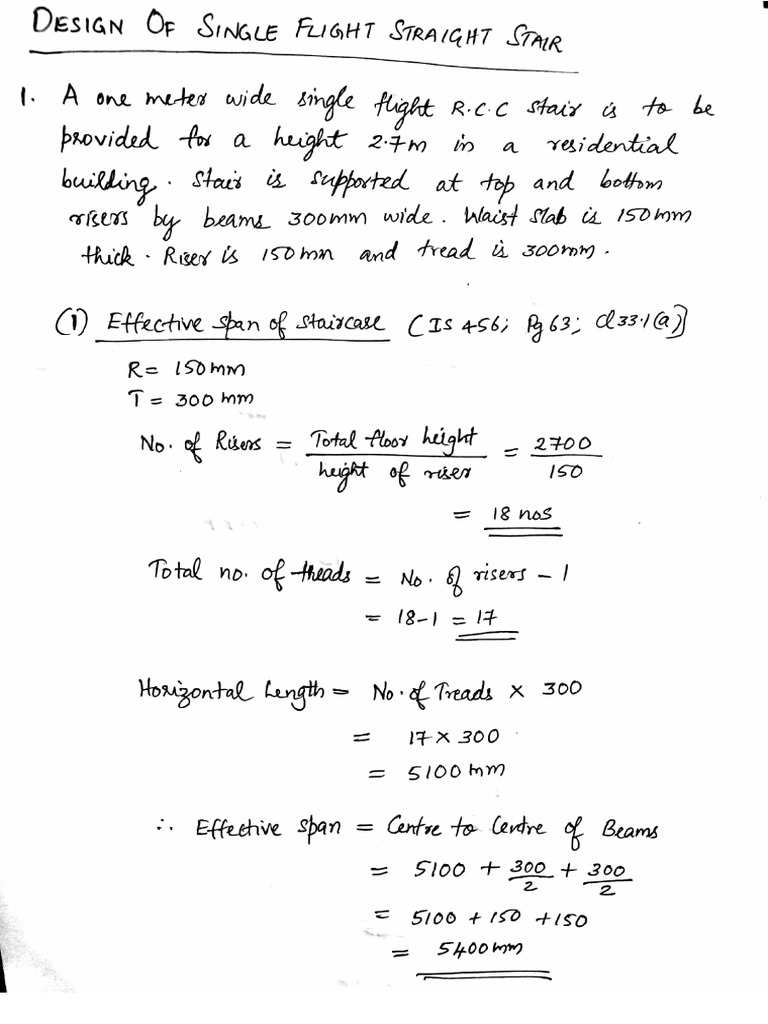 DESIGN OF SINGLE FLIGHT STRAIGHT STAIR
1. A one meter wide single flight R.C.C stair is to be
provided for a height 2.7m in a residential
building. Stair is supported at top and bottom
risers by beams 300mm wide. Waist slab is 150mm
thick. Riser is 150mm and tread is 300mm.
(1) Effective span of staircase (IS 456; Pg 63; Cl 33.1(a)]
R = 150mm
T = 300 mm
No. of Risers = Total floor height / height of riser = 2700 / 150
= 18 nos
Total no. of theads = No. of risers - 1
= 18-1 = 17
Horizontal Length = No. of Treads × 300
= 17 × 300
= 5100 mm
∴ Effective span = Centre to Centre of Beams
= 5100 + 300/2 + 300/2
= 5100 + 150 + 150
= 5400mm